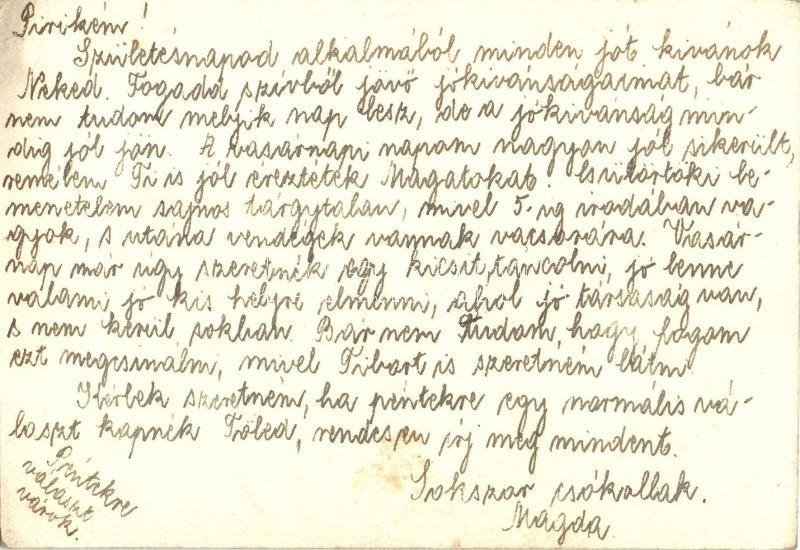 Pirikém!
Születésnapod alkalmából minden jót kivánok
Neked. Fogadd szívből jövő jókivánságaimat, bár
nem tudom melyik nap lesz, de a jókivánság min-
dig jól jön. A vasárnapi napom nagyon jól sikerült,
remélem Ti is jól éreztétek Magatokat. Csütörtöki be-
menetelem sajnos tárgytalan, mivel 5-ig irodában va-
gyok, s utána vendégek vannak vacsorára. Vasár-
nap már úgy szeretnék egy kicsit táncolni, jó lenne
valami jó kis helyre elmenni, ahol jó társaság van,
s nem kerül sokban. Bár nem tudom, hogy fogom
ezt megcsinálni, mivel Tibort is szeretném látni.
Kérlek szeretném, ha péntekre egy normális vá-
laszt kapnék Tőled, rendesen írj meg mindent.
Sokszor csókollak.
Magda
Péntekre
választ
várok.